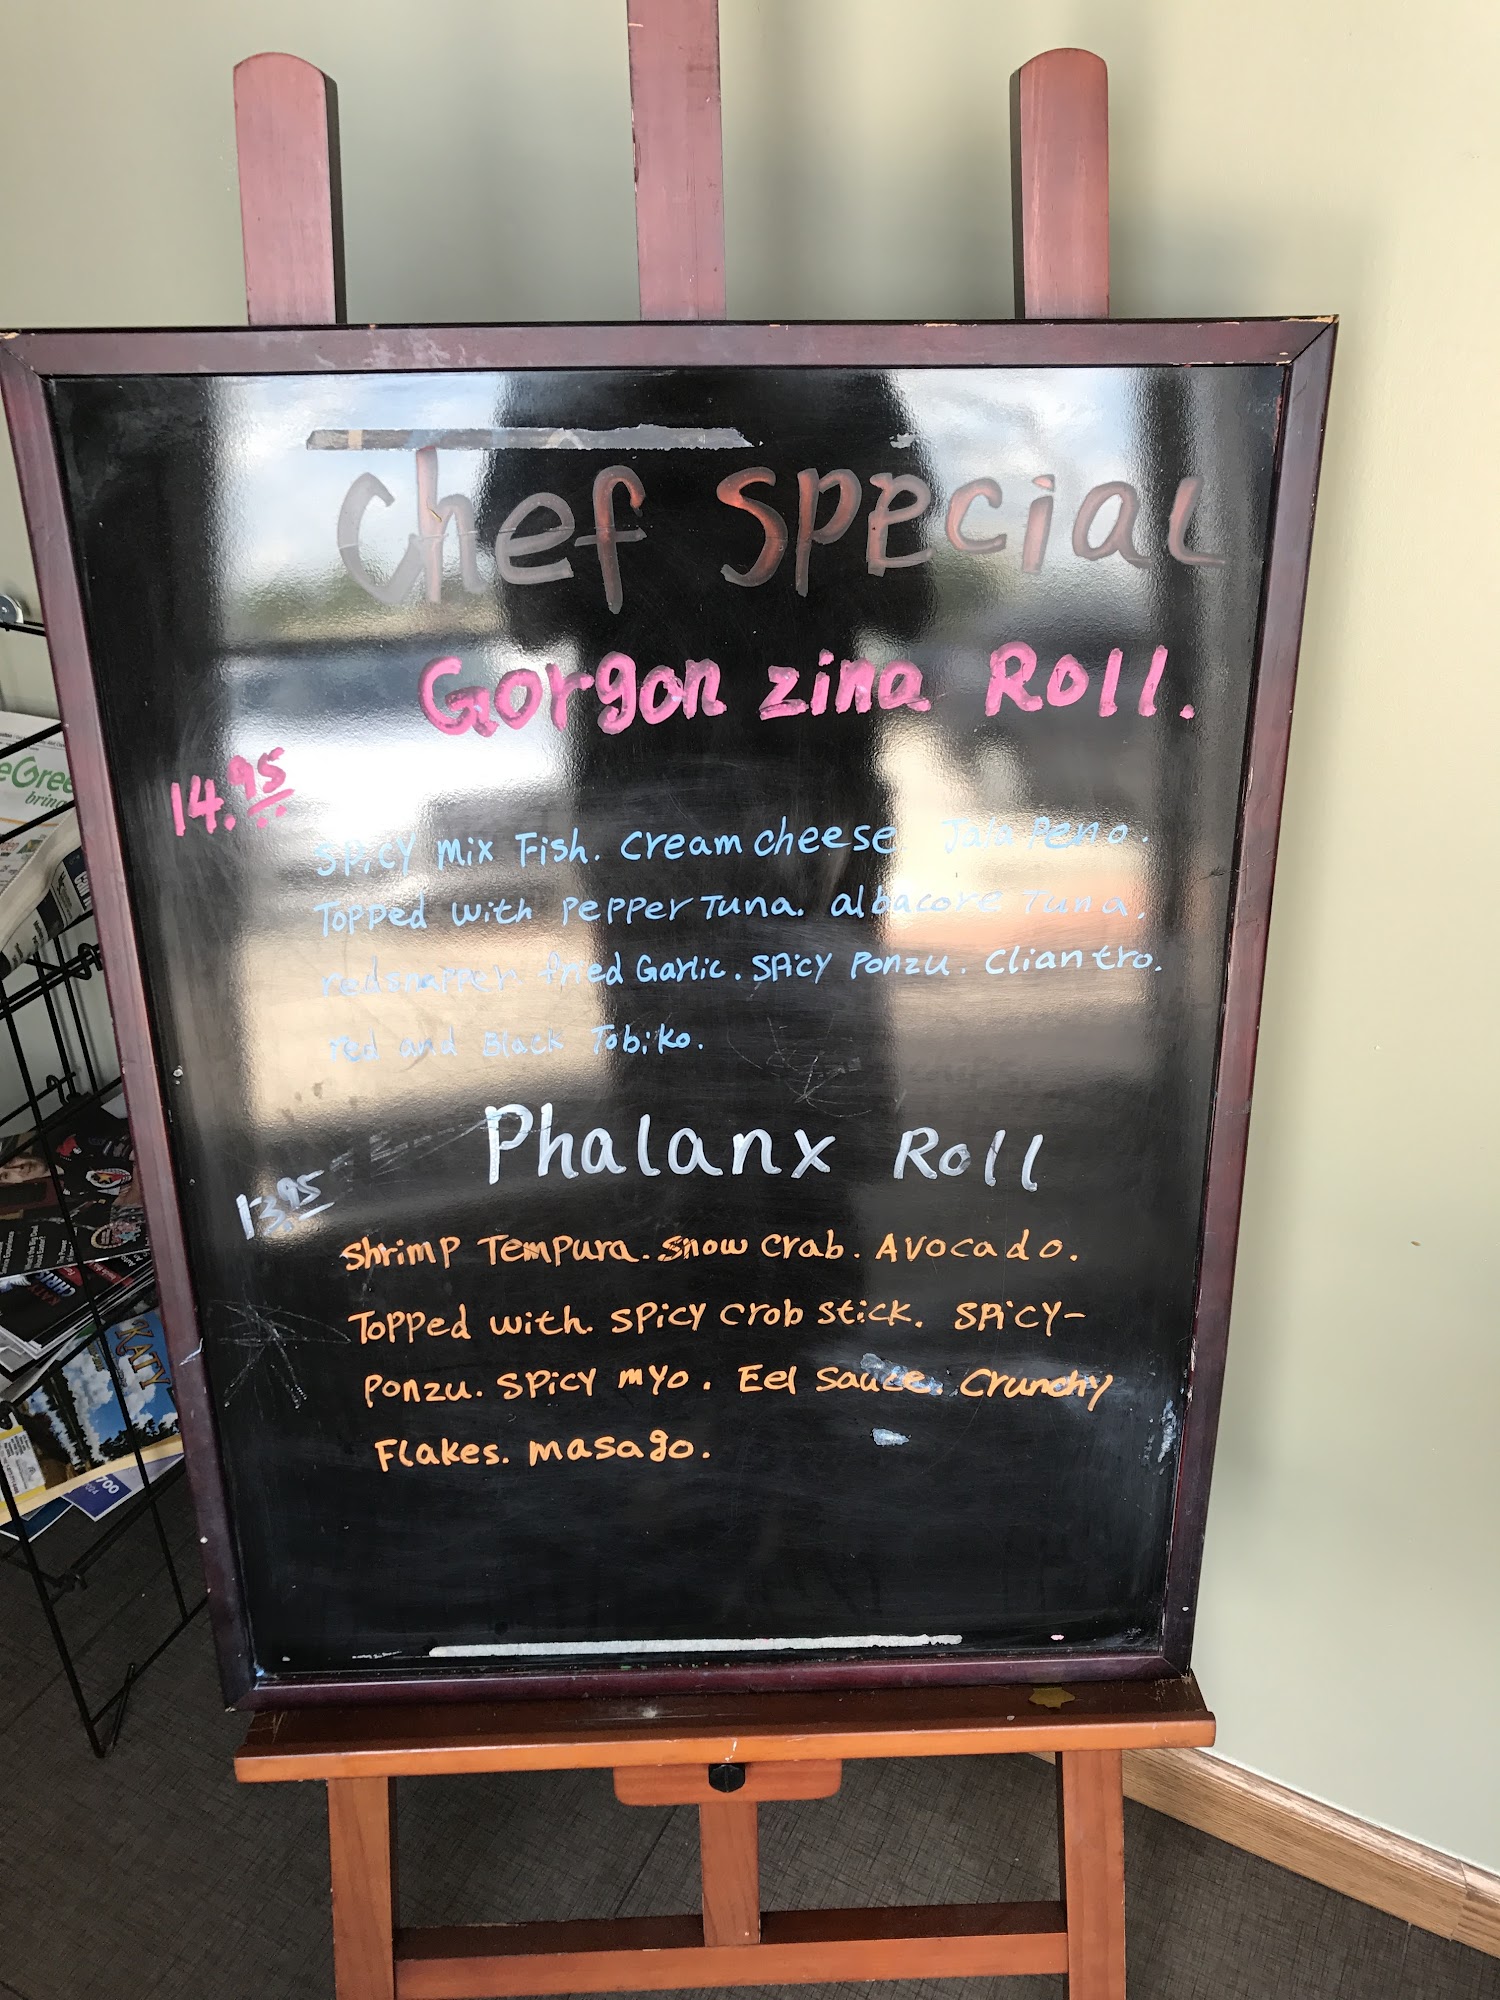 Chef Special
Gorgon zina Roll.
14.95
Spicy Mix Fish. Cream cheese. Jalapeno.
Topped with pepper Tuna. albacore Tuna.
redsnapper. fried Garlic. Spicy Ponzu. Cliantro.
red and Black Tobiko.
Phalanx Roll
13.95
Shrimp Tempura. Snow crab. Avocado.
Topped with. Spicy crob stick. Spicy-
Ponzu. Spicy myo. Eel Sauce. Crunchy
Flakes. masago.
eGree
brin
KATY
700